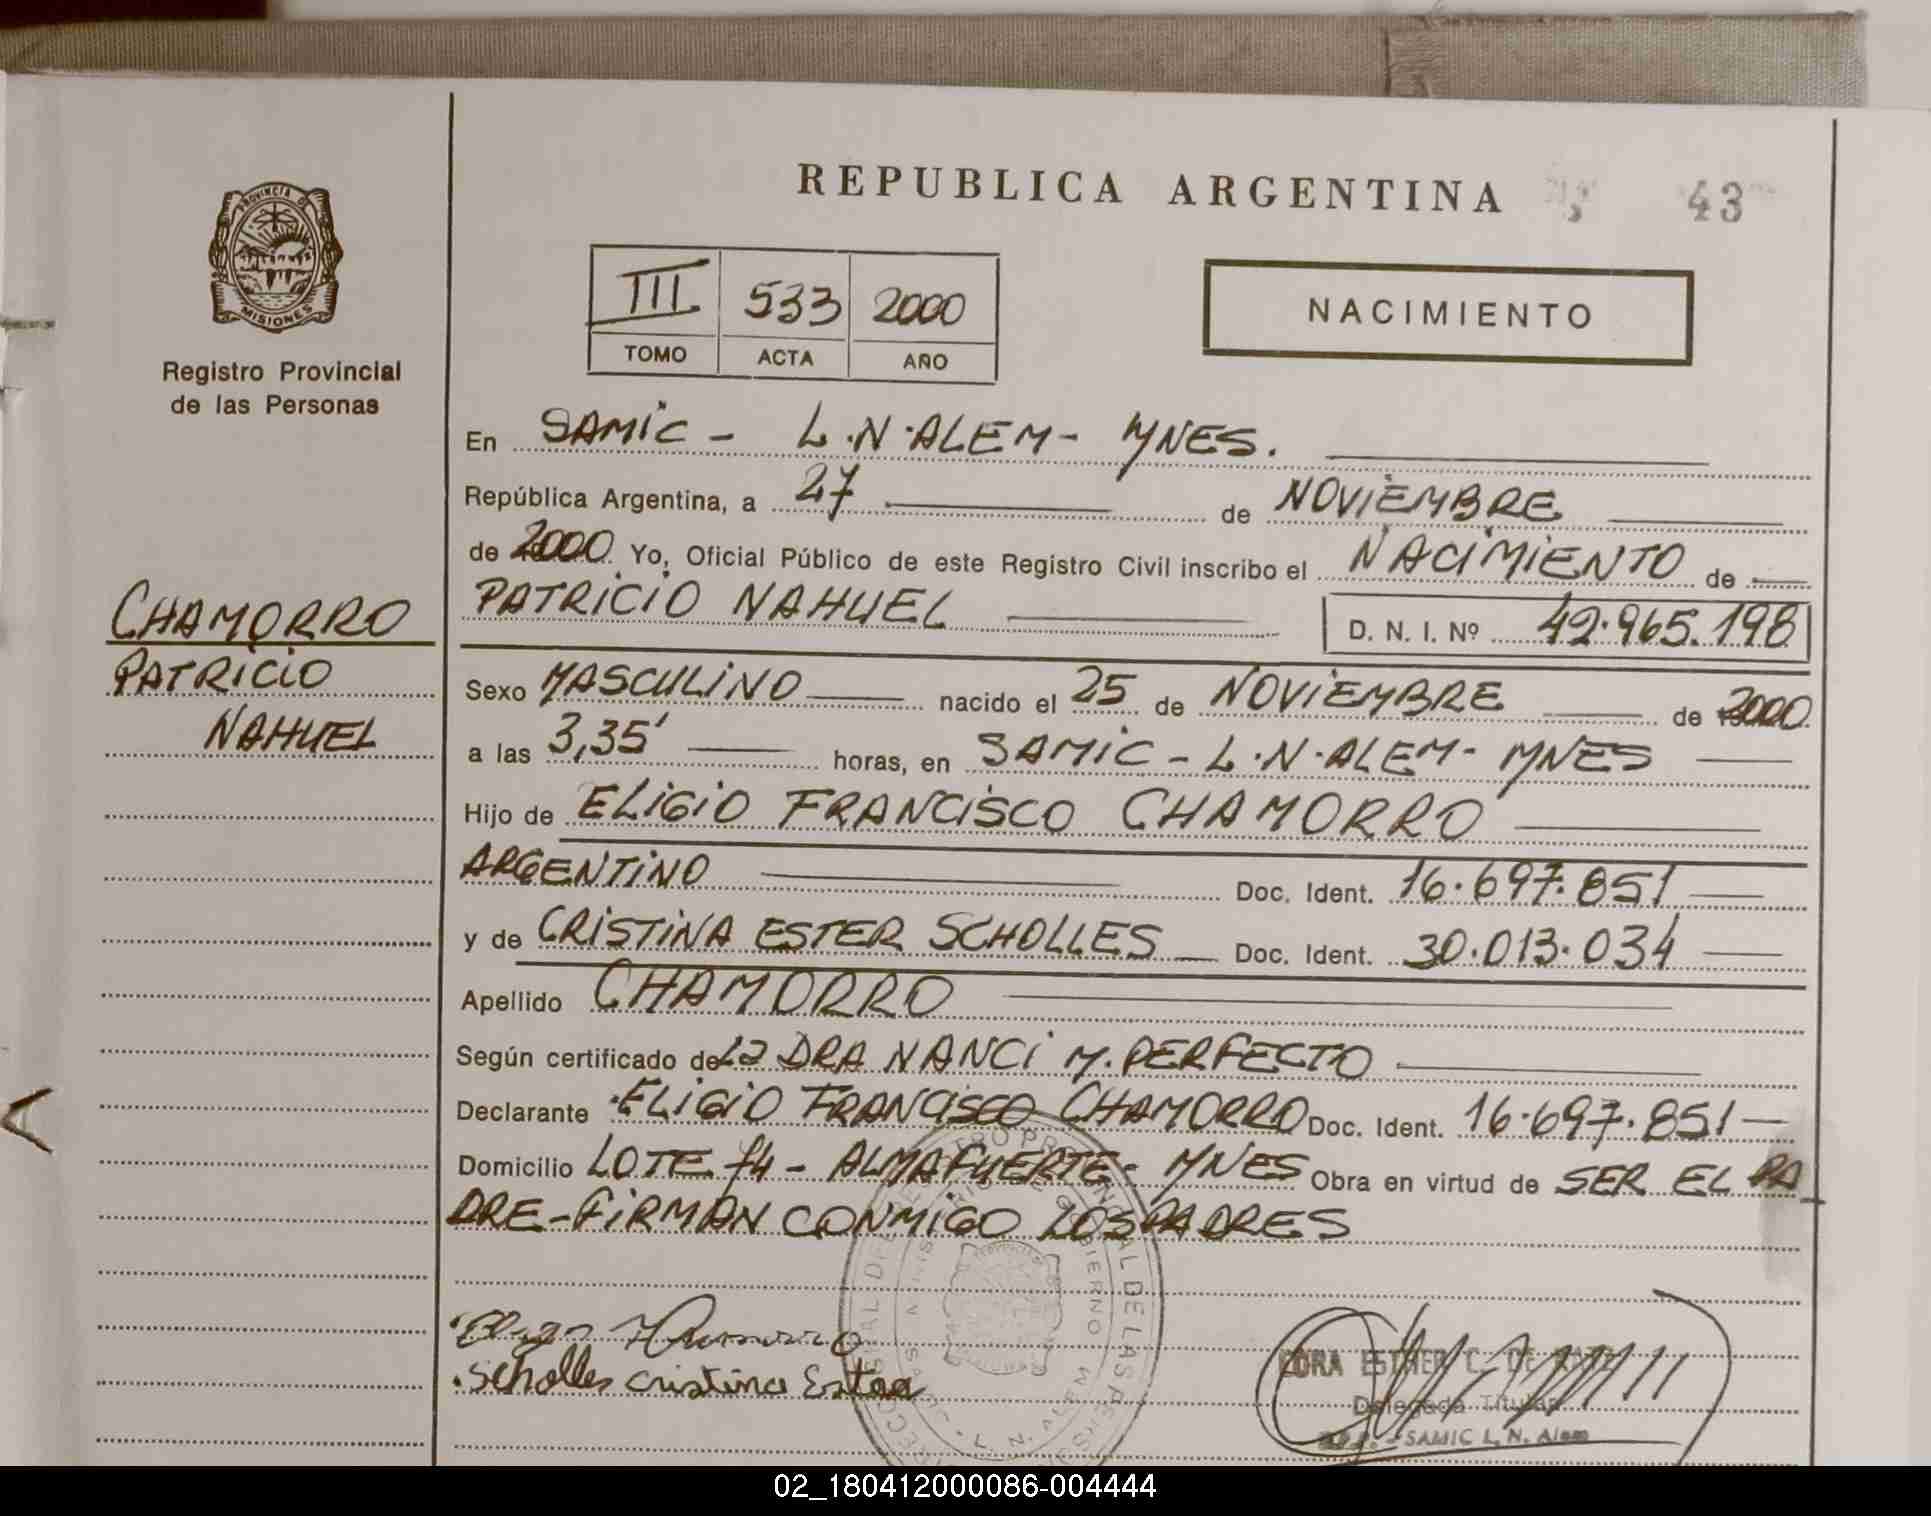 REPUBLICA ARGENTINA
43
PROVINCIA DE
MISIONES
Registro Provincial
de las Personas
III 533 2000
TOMO ACTA AÑO
NACIMIENTO
En SAMIC - L.N.ALEM - MNES.
República Argentina, a 27 de NOVIEMBRE
de 2000 Yo, Oficial Público de este Registro Civil inscribo el NACIMIENTO de
PATRICIO NAHUEL D. N. I. Nº 42.965.198
CHAMORRO
PATRICIO
NAHUEL
Sexo MASCULINO nacido el 25 de NOVIEMBRE de 2000
a las 3,35' horas, en SAMIC - L.N.ALEM - MNES
Hijo de ELIGIO FRANCISCO CHAMORRO
ARGENTINO Doc. Ident. 16.697.851
y de CRISTINA ESTER SCHOLLES Doc. Ident. 30.013.034
Apellido CHAMORRO
Según certificado de La DRA NANCI M. PERFECTO
Declarante ELIGIO FRANCISCO CHAMORRO Doc. Ident. 16.697.851
Domicilio LOTE 74 - ALMAFUERTE - MNES Obra en virtud de SER EL PA
DRE - FIRMAN CONMIGO LOS PADRES
Scholles Cristina Ester
ESTHER C. DE
Delegada Titular
SAMIC L. N. Alem
L. N. ALEM
02_180412000086-004444